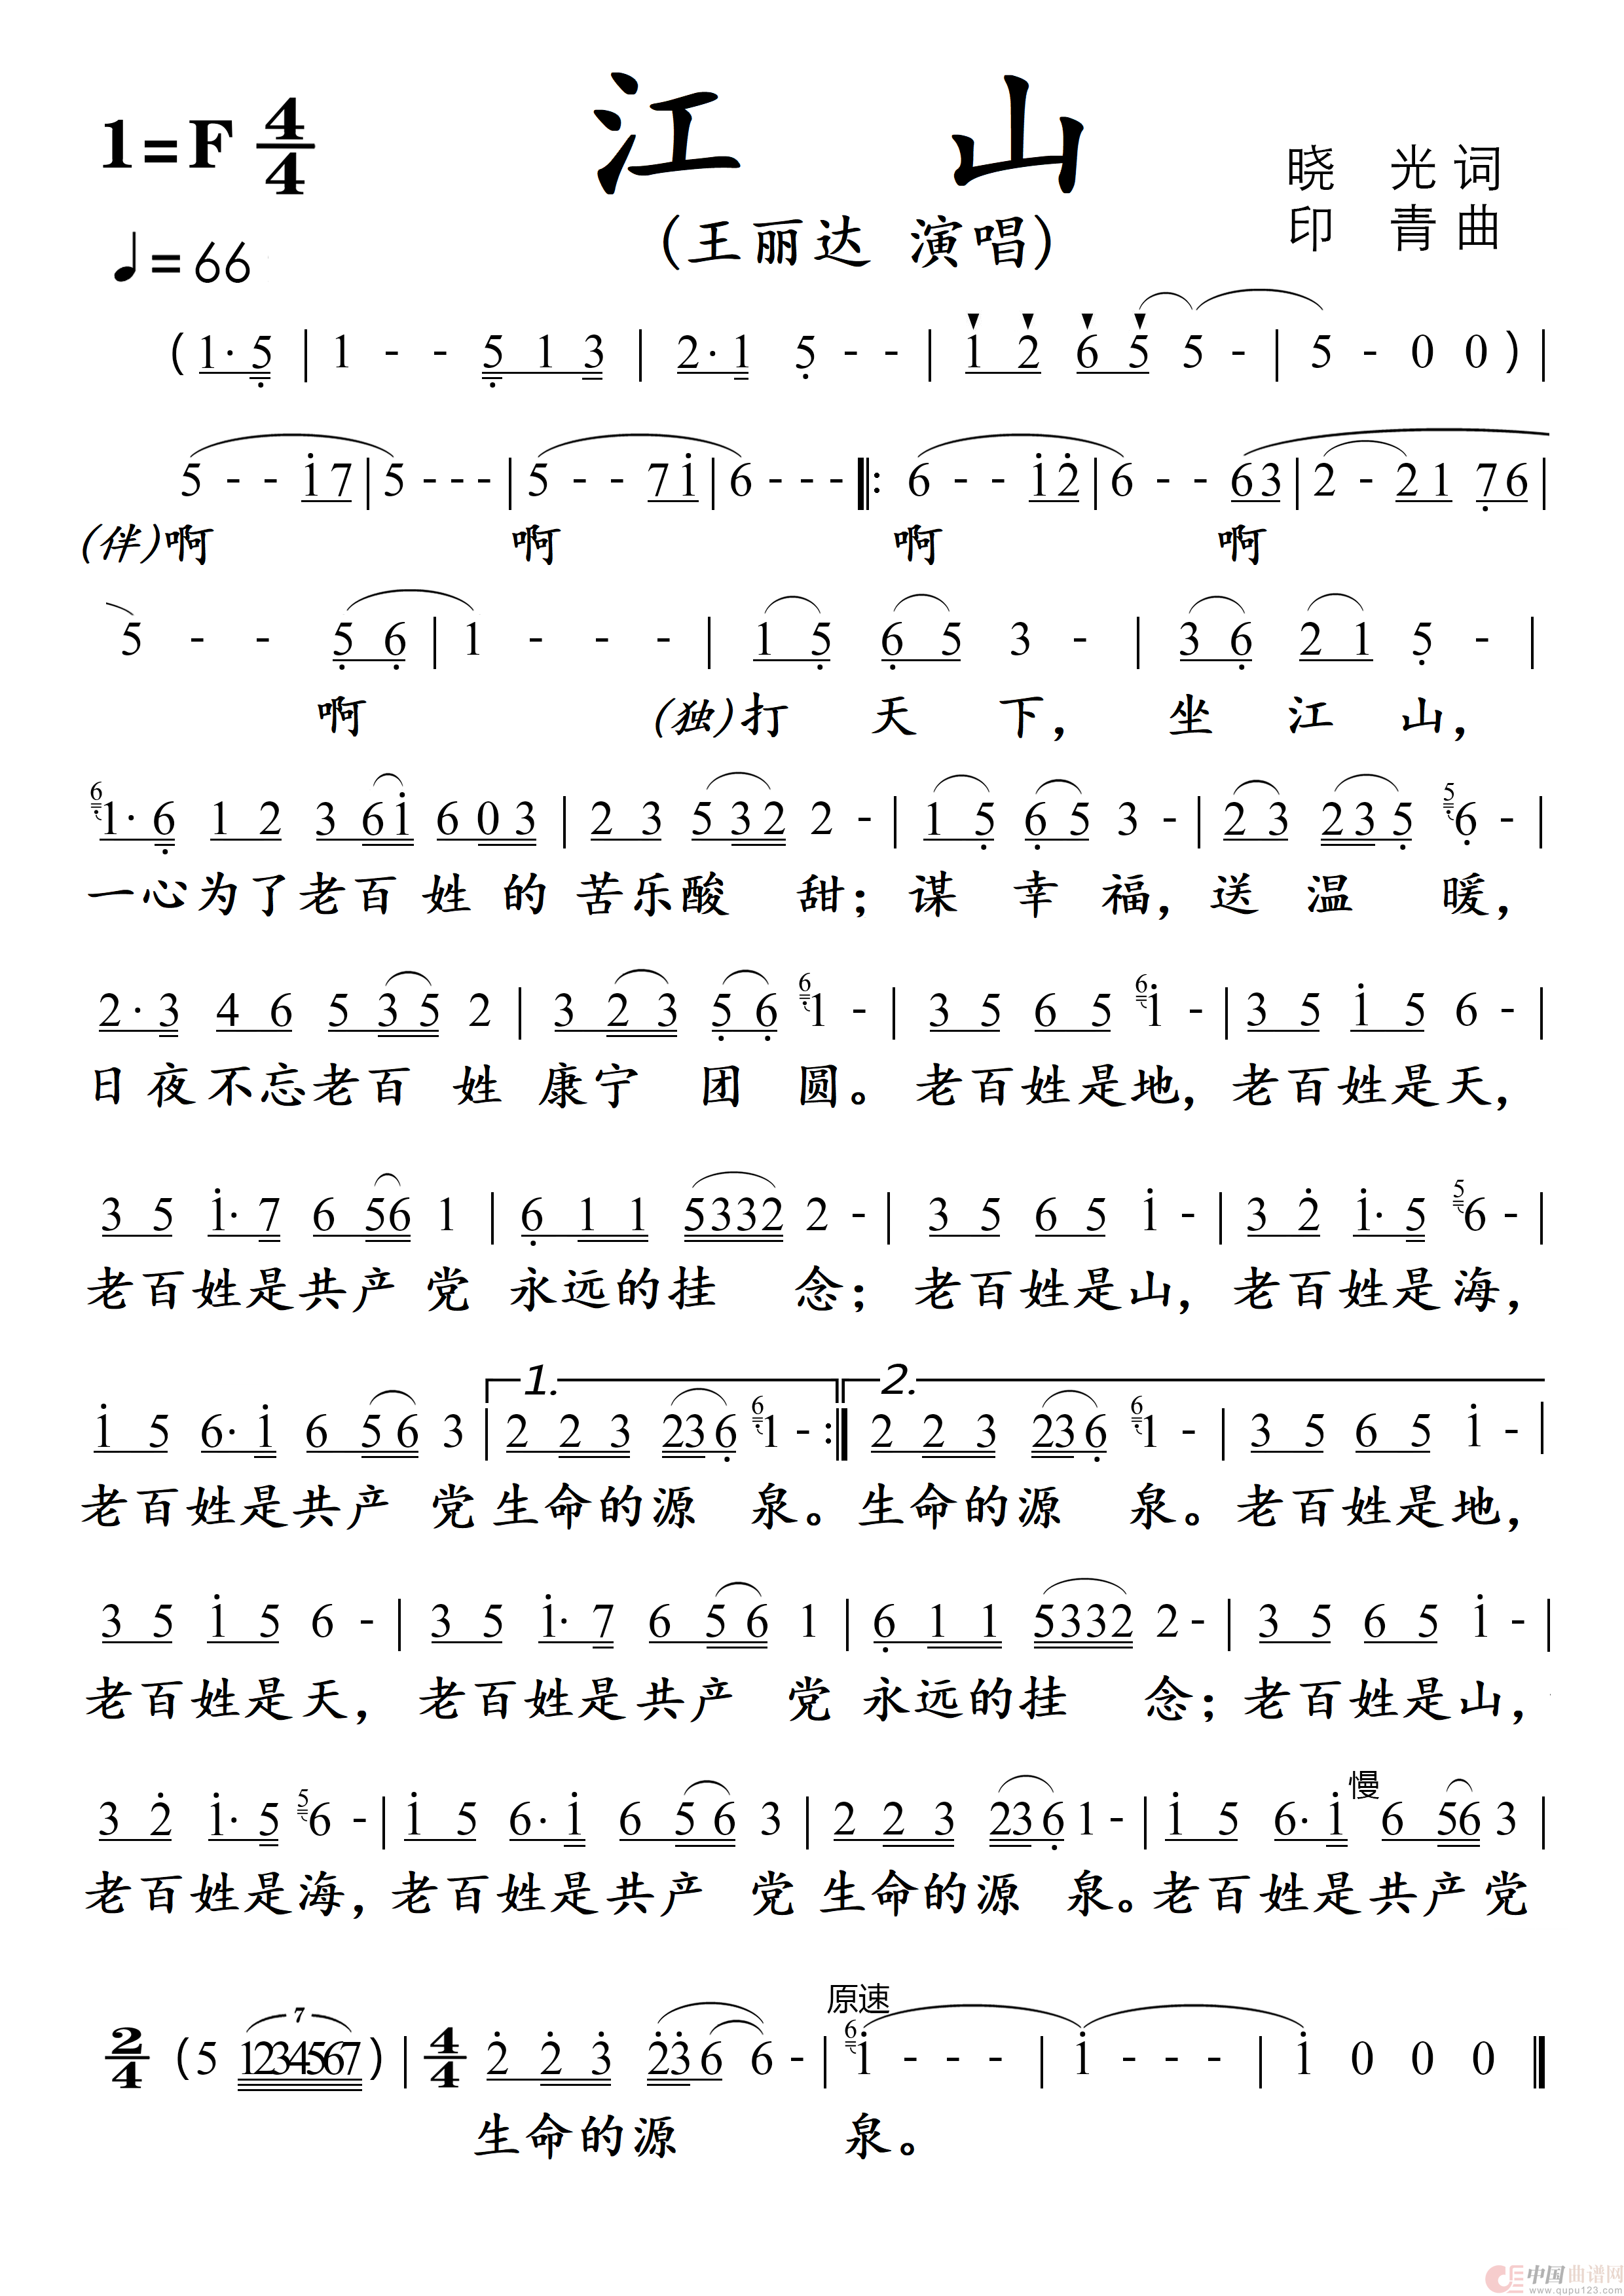 江 山
1=F 4/4
晓 光 词
(王丽达 演唱)
印 青 曲
♩=66
(1· 5 | 1 - - 5 1 3 | 2·1 5 - - | 1 2 6 5 5 - | 5 - 0 0 ) |
5 - - 1 7 | 5 - - - | 5 - - 7 1 | 6 - - - |: 6 - - 1 2 | 6 - - 6 3 | 2 - 2 1 7 6 |
(伴)啊 啊 啊 啊
5 - - 5 6 | 1 - - - | 1 5 6 5 3 - | 3 6 2 1 5 - |
啊 (独)打 天 下, 坐 江 山,
6 1· 6 1 2 3 6 1 6 0 3 | 2 3 5 3 2 2 - | 1 5 6 5 3 - | 2 3 2 3 5 5 6 - |
一心为了老百 姓 的 苦乐酸 甜; 谋 幸 福, 送 温 暖,
2· 3 4 6 5 3 5 2 | 3 2 3 5 6 6 1 - | 3 5 6 5 6 1 - | 3 5 1 5 6 - |
日夜不忘老百 姓 康宁 团 圆。 老百姓是地, 老百姓是天,
3 5 1· 7 6 5 6 1 | 6 1 1 5 3 3 2 2 - | 3 5 6 5 1 - | 3 2 1· 5 5 6 - |
老百姓是共产 党 永远的挂 念; 老百姓是山, 老百姓是海,
1. 2.
1 5 6· 1 6 5 6 3 | 2 2 3 2 3 6 6 1 - :| 2 2 3 2 3 6 6 1 - | 3 5 6 5 1 - |
老百姓是共产 党 生命的源 泉。 生命的源 泉。 老百姓是地,
3 5 1 5 6 - | 3 5 1· 7 6 5 6 1 | 6 1 1 5 3 3 2 2 - | 3 5 6 5 1 - |
老百姓是天, 老百姓是共产 党 永远的挂 念; 老百姓是山,
慢
3 2 1· 5 5 6 - | 1 5 6· 1 6 5 6 3 | 2 2 3 2 3 6 1 - | 1 5 6· 1 6 5 6 3 |
老百姓是海, 老百姓是共产 党 生命的源 泉。老百姓是共产党
原速
7
2/4 (5 1 2 3 4 5 6 7) | 4/4 2 2 3 2 3 6 6 - | 6 1 - - - | 1 - - - | 1 0 0 0 ‖
生命的源 泉。
中国曲谱网
www.qupu123.com